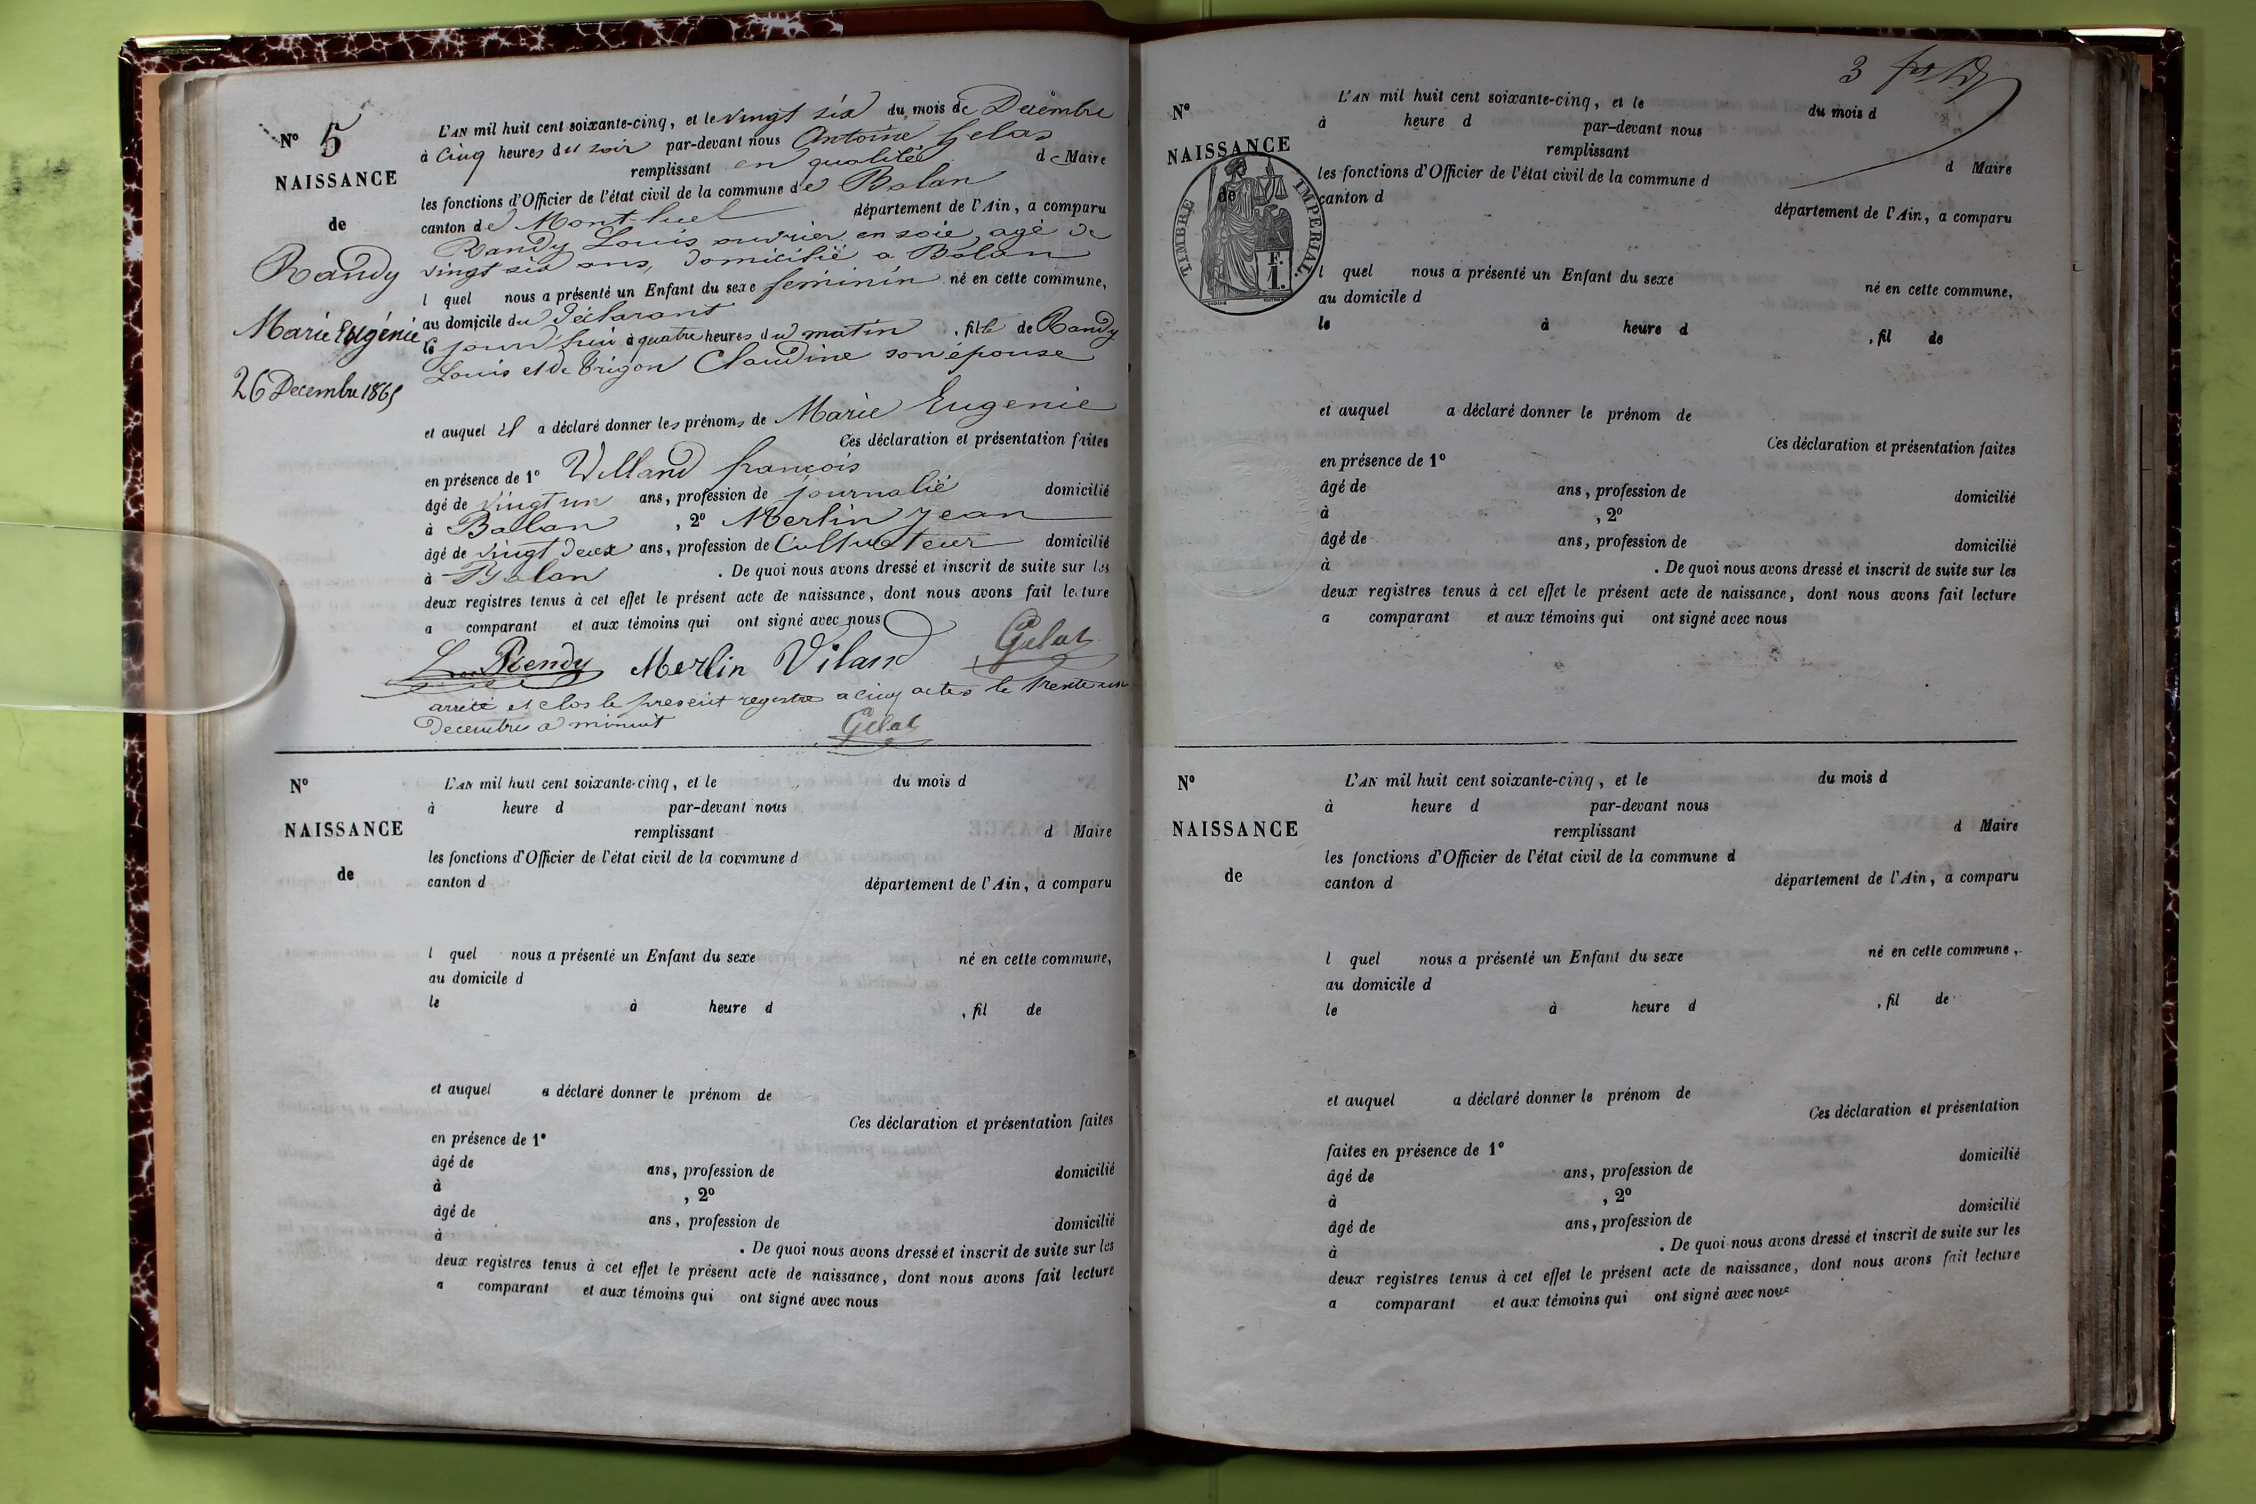 N° 5
NAISSANCE
de
Randy
Marie Eugénie
26 Decembre 1865
L'AN mil huit cent soixante-cinq, et le vingt six du mois de Decembre
à Cinq heures du soir par-devant nous Antoine Gelas
remplissant en qualité de Maire
les fonctions d'Officier de l'état civil de la commune de Balan
canton de Mont-luel département de l'Ain, a comparu
Randy Louis ouvrier en soie, agé de
vingt six ans, domicilié a Balan
l quel nous a présenté un Enfant du sexe feminin né en cette commune,
au domicile du déclarant
le jourd'hui à quatre heures du matin, fille de Randy
Louis et de Trigon Claudine son épouse
et auquel il a déclaré donner les prénoms de Marie Eugenie
Ces déclaration et présentation faites
en présence de 1° Villand françois
âgé de vingt un ans, profession de journalié domicilié
à Balan, 2° Merlin Jean
âgé de vingt deux ans, profession de Cultivateur domicilié
à Balan. De quoi nous avons dressé et inscrit de suite sur les
deux registres tenus à cet effet le présent acte de naissance, dont nous avons fait lecture
a comparant et aux témoins qui ont signé avec nous
L Rendy Merlin Viland Gelat
arreté et clos le present registre a cinq actes le trente un
decembre a minuit
Gelat
N°
NAISSANCE
de
L'AN mil huit cent soixante-cinq, et le du mois d
à heure d par-devant nous
remplissant d Maire
les fonctions d'Officier de l'état civil de la commune d
canton d département de l'Ain, a comparu
l quel nous a présenté un Enfant du sexe né en cette commune,
au domicile d
le à heure d , fil de
et auquel a déclaré donner le prénom de
Ces déclaration et présentation faites
en présence de 1°
âgé de ans, profession de domicilié
à , 2°
âgé de ans, profession de domicilié
à . De quoi nous avons dressé et inscrit de suite sur les
deux registres tenus à cet effet le présent acte de naissance, dont nous avons fait lecture
a comparant et aux témoins qui ont signé avec nous
3
N°
NAISSANCE
de
TIMBRE IMPERIAL.
F.
1.
L'AN mil huit cent soixante-cinq, et le du mois d
à heure d par-devant nous
remplissant d Maire
les fonctions d'Officier de l'état civil de la commune d
canton d département de l'Ain, a comparu
l quel nous a présenté un Enfant du sexe né en cette commune,
au domicile d
le à heure d , fil de
et auquel a déclaré donner le prénom de
Ces déclaration et présentation faites
en présence de 1°
âgé de ans, profession de domicilié
à , 2°
âgé de ans, profession de domicilié
à . De quoi nous avons dressé et inscrit de suite sur les
deux registres tenus à cet effet le présent acte de naissance, dont nous avons fait lecture
a comparant et aux témoins qui ont signé avec nous
N°
NAISSANCE
de
L'AN mil huit cent soixante-cinq, et le du mois d
à heure d par-devant nous
remplissant d Maire
les fonctions d'Officier de l'état civil de la commune d
canton d département de l'Ain, a comparu
l quel nous a présenté un Enfant du sexe né en cette commune,
au domicile d
le à heure d , fil de
et auquel a déclaré donner le prénom de
Ces déclaration et présentation
faites en présence de 1°
âgé de ans, profession de domicilié
à , 2°
âgé de ans, profession de domicilié
à . De quoi nous avons dressé et inscrit de suite sur les
deux registres tenus à cet effet le présent acte de naissance, dont nous avons fait lecture
a comparant et aux témoins qui ont signé avec nous